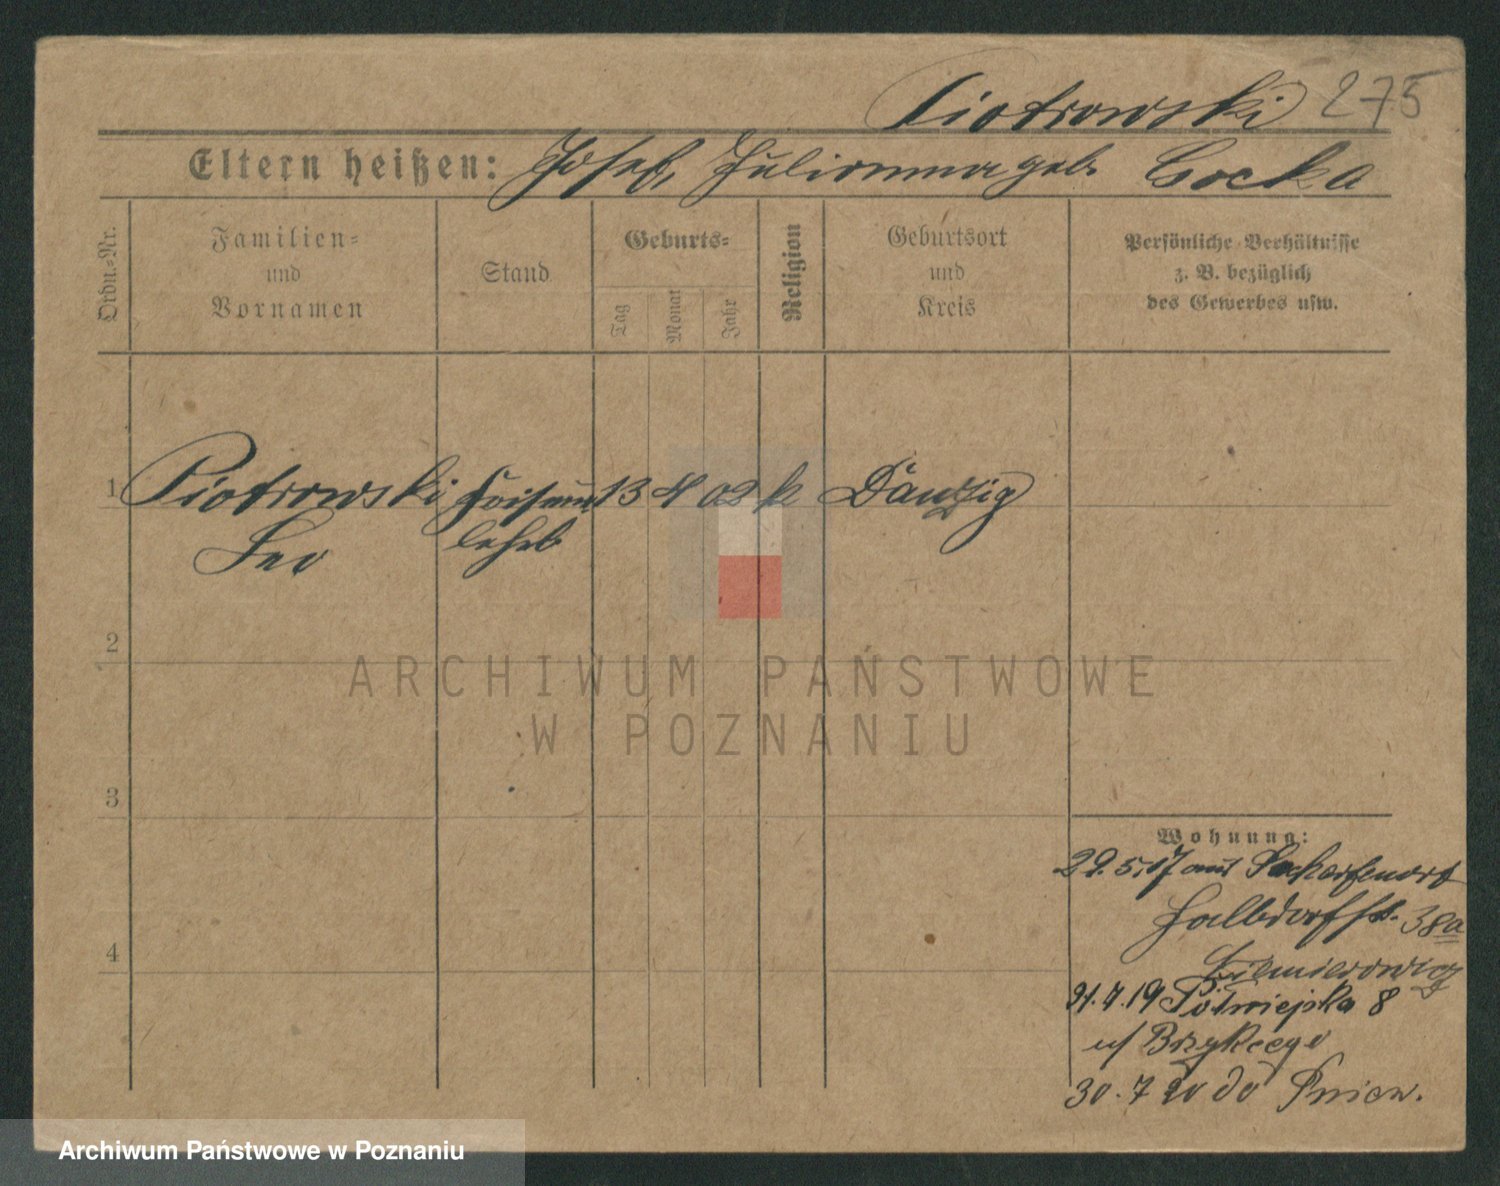 Piotrowski 275
Eltern heißen: Josef, Julianna geb. Cocka
Ordn.-Nr.
Familien-
und
Vornamen
Stand
Geburts-
Tag
Monat
Jahr
Religion
Geburtsort
und
Kreis
Persönliche Verhältnisse
z. B. bezüglich
des Gewerbes usw.
1 Piotrowski 13 4 02 k Danzig
Leo
lehrl
2
ARCHIWUM PAŃSTWOWE
W POZNANIU
3
Wohnung:
29.5.17 aus Scharfenort
Halbdorfstr. 38a
4
Półwiejska 8
30.7 20 do Pniew.
Archiwum Państwowe w Poznaniu